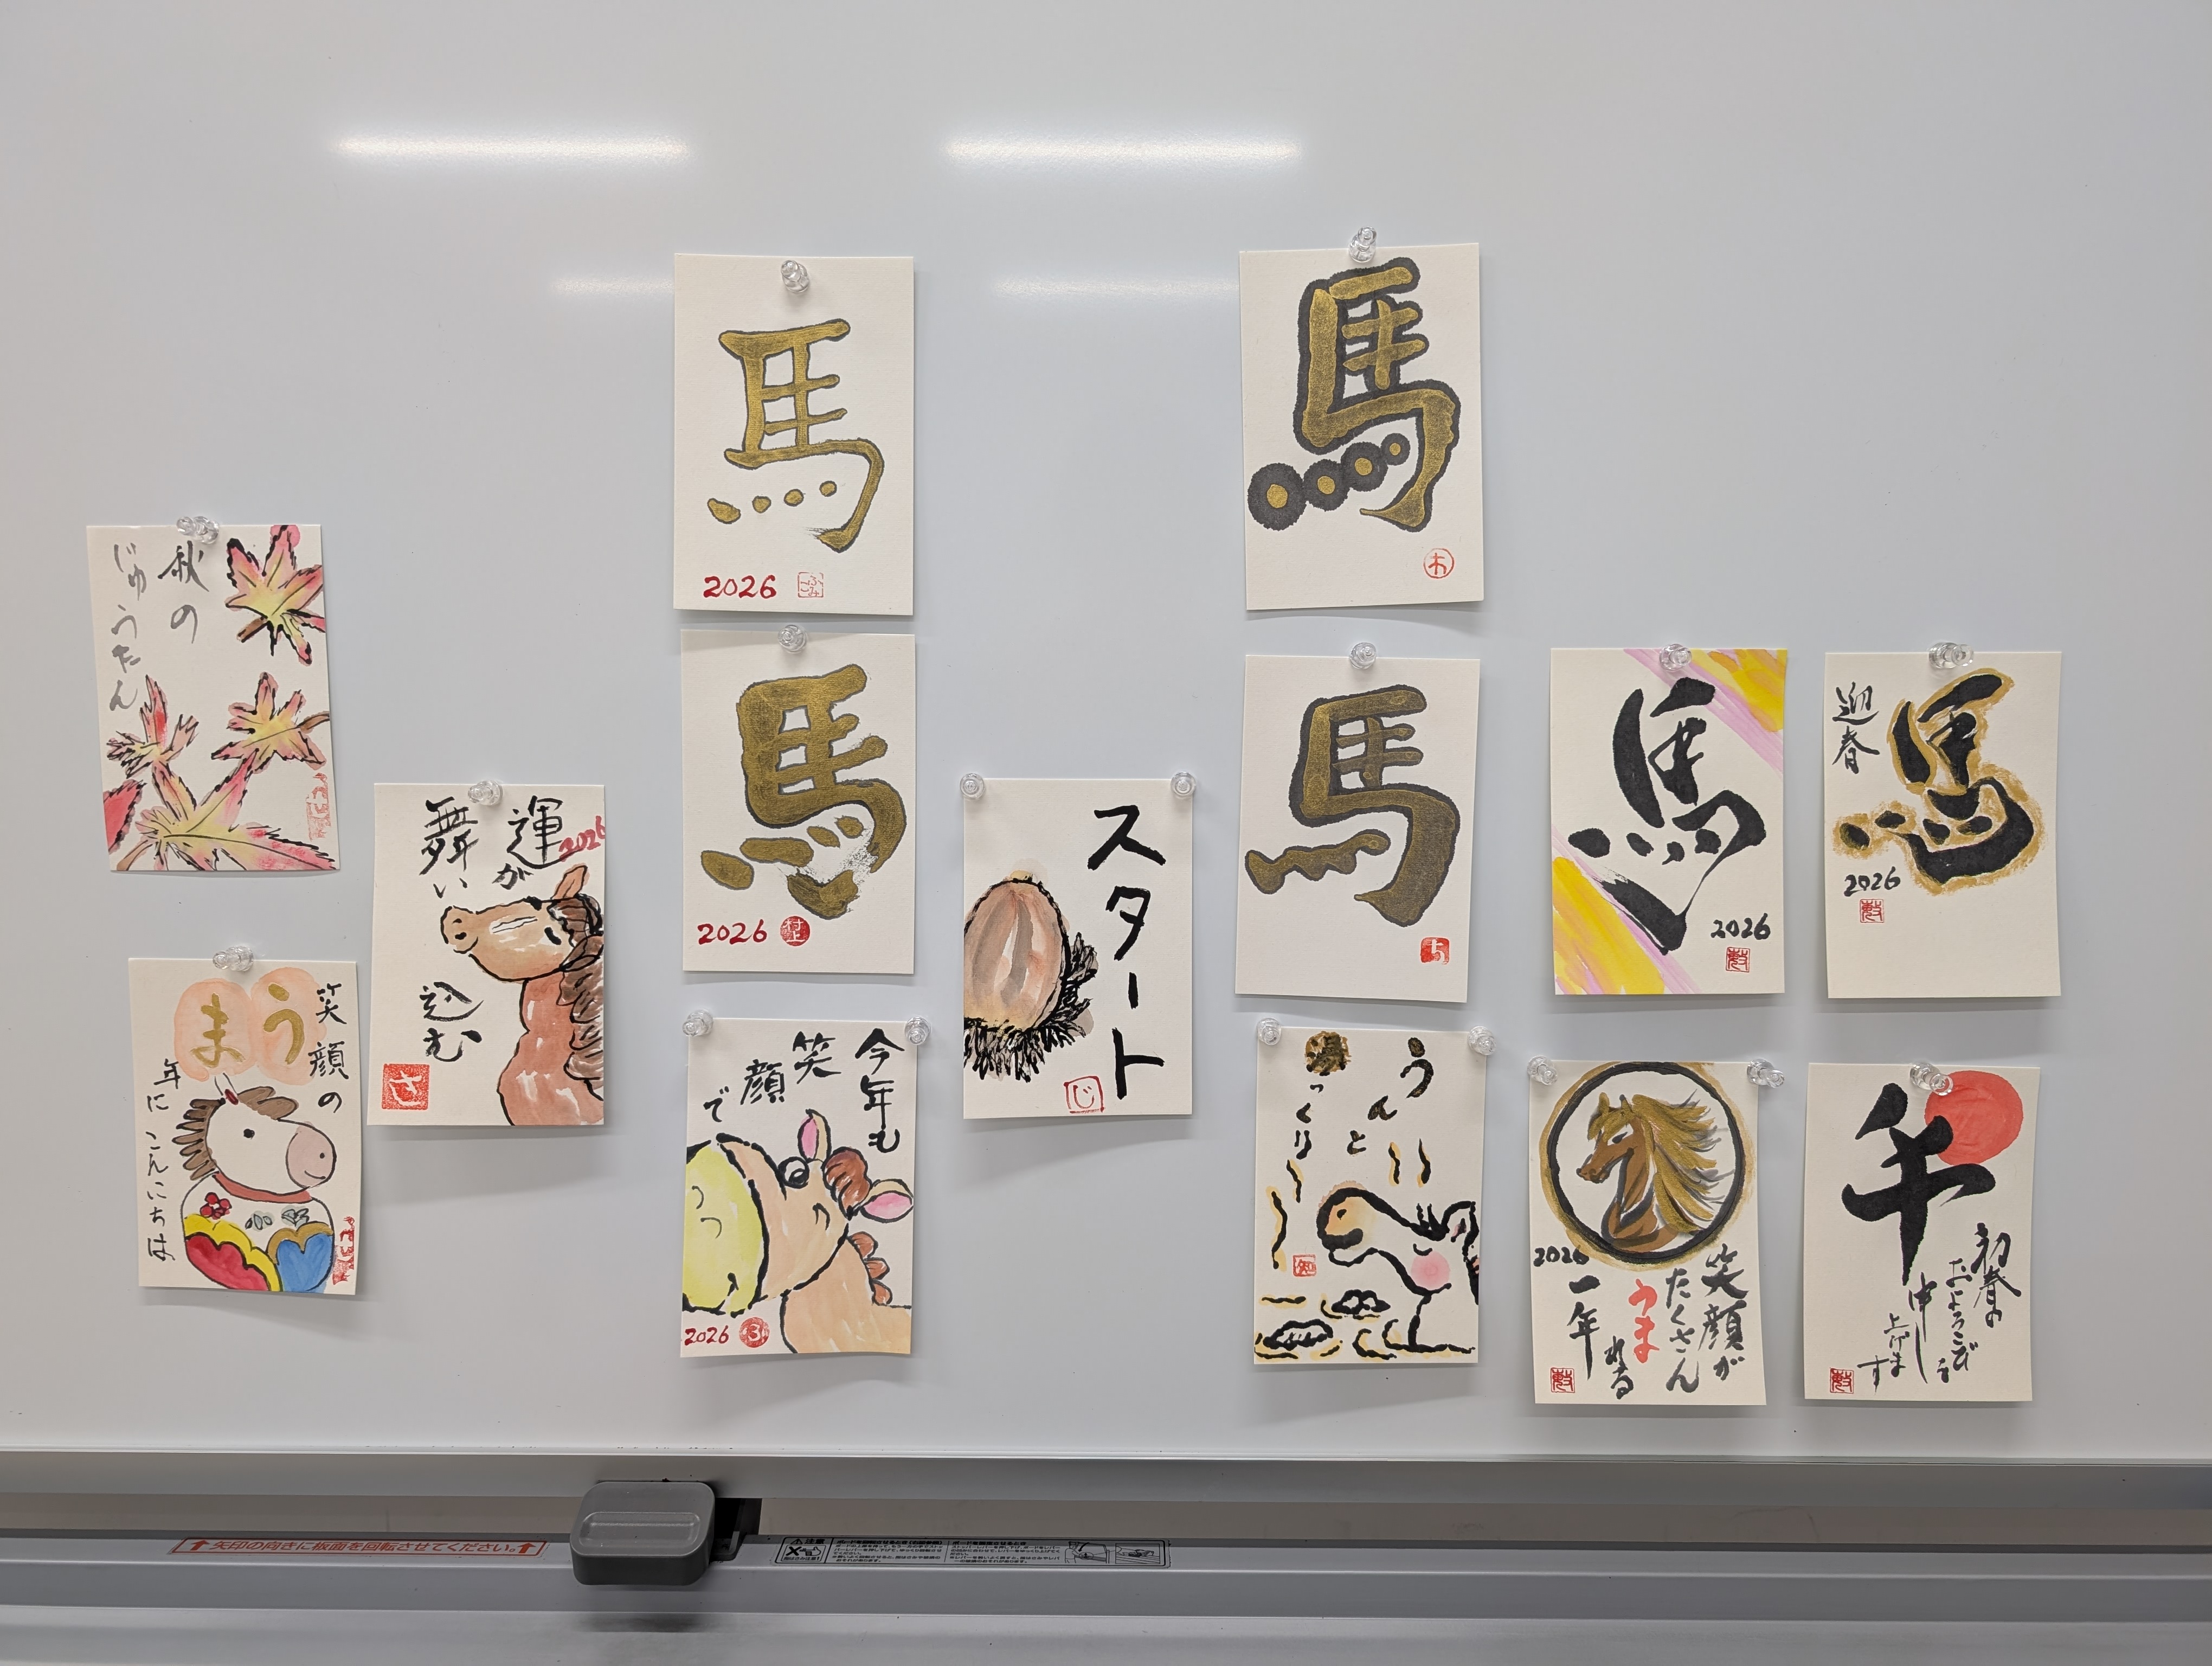 秋の
じゅうたん
笑顔の
うま
年に こんにちは
2026
運が
舞い
込む
さ
馬
2026
ふみこ
馬
2026
村上
今年も
笑
顔
で
2026
スタート
じ
馬
馬
うんと
っくり
知
馬
2026
敷
迎春
馬
2026
敷
2026
笑顔が
たくさん
うま
れる
一年
敷
午
初春の
およろこびを
申し
上げま
す
敷
矢印の向きに板面を回転させてください。
注意